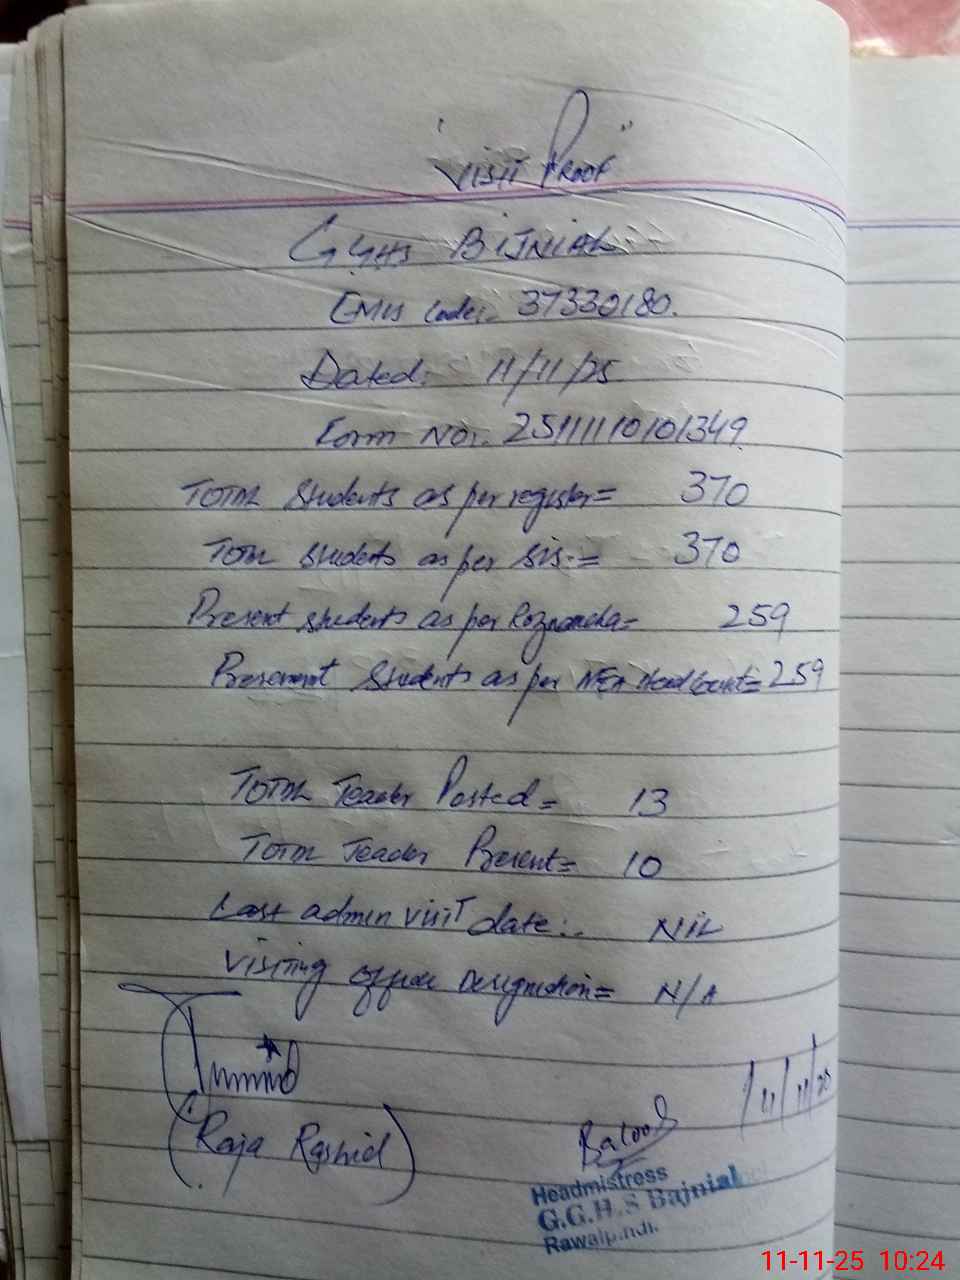 "Visit Proof"
GGHS BIJNIAL
EMIS Code:- 37330180.
Dated: 11/11/25
Form No:. 25111110101349
Total Students as per register= 370
Total Students as per SIS.= 370
Present Students as per Roznamcha= 259
Presenent Students as per MEA Head Count= 259
Total Teacher Posted= 13
Total Teacher Present= 10
Last admin visit date:. NIL
Visiting officer Designation= N/A
11/11/25
(Raja Rashid)
Headmistress
G.G.H.S Bajnial
Rawalpindi.
11-11-25 10:24